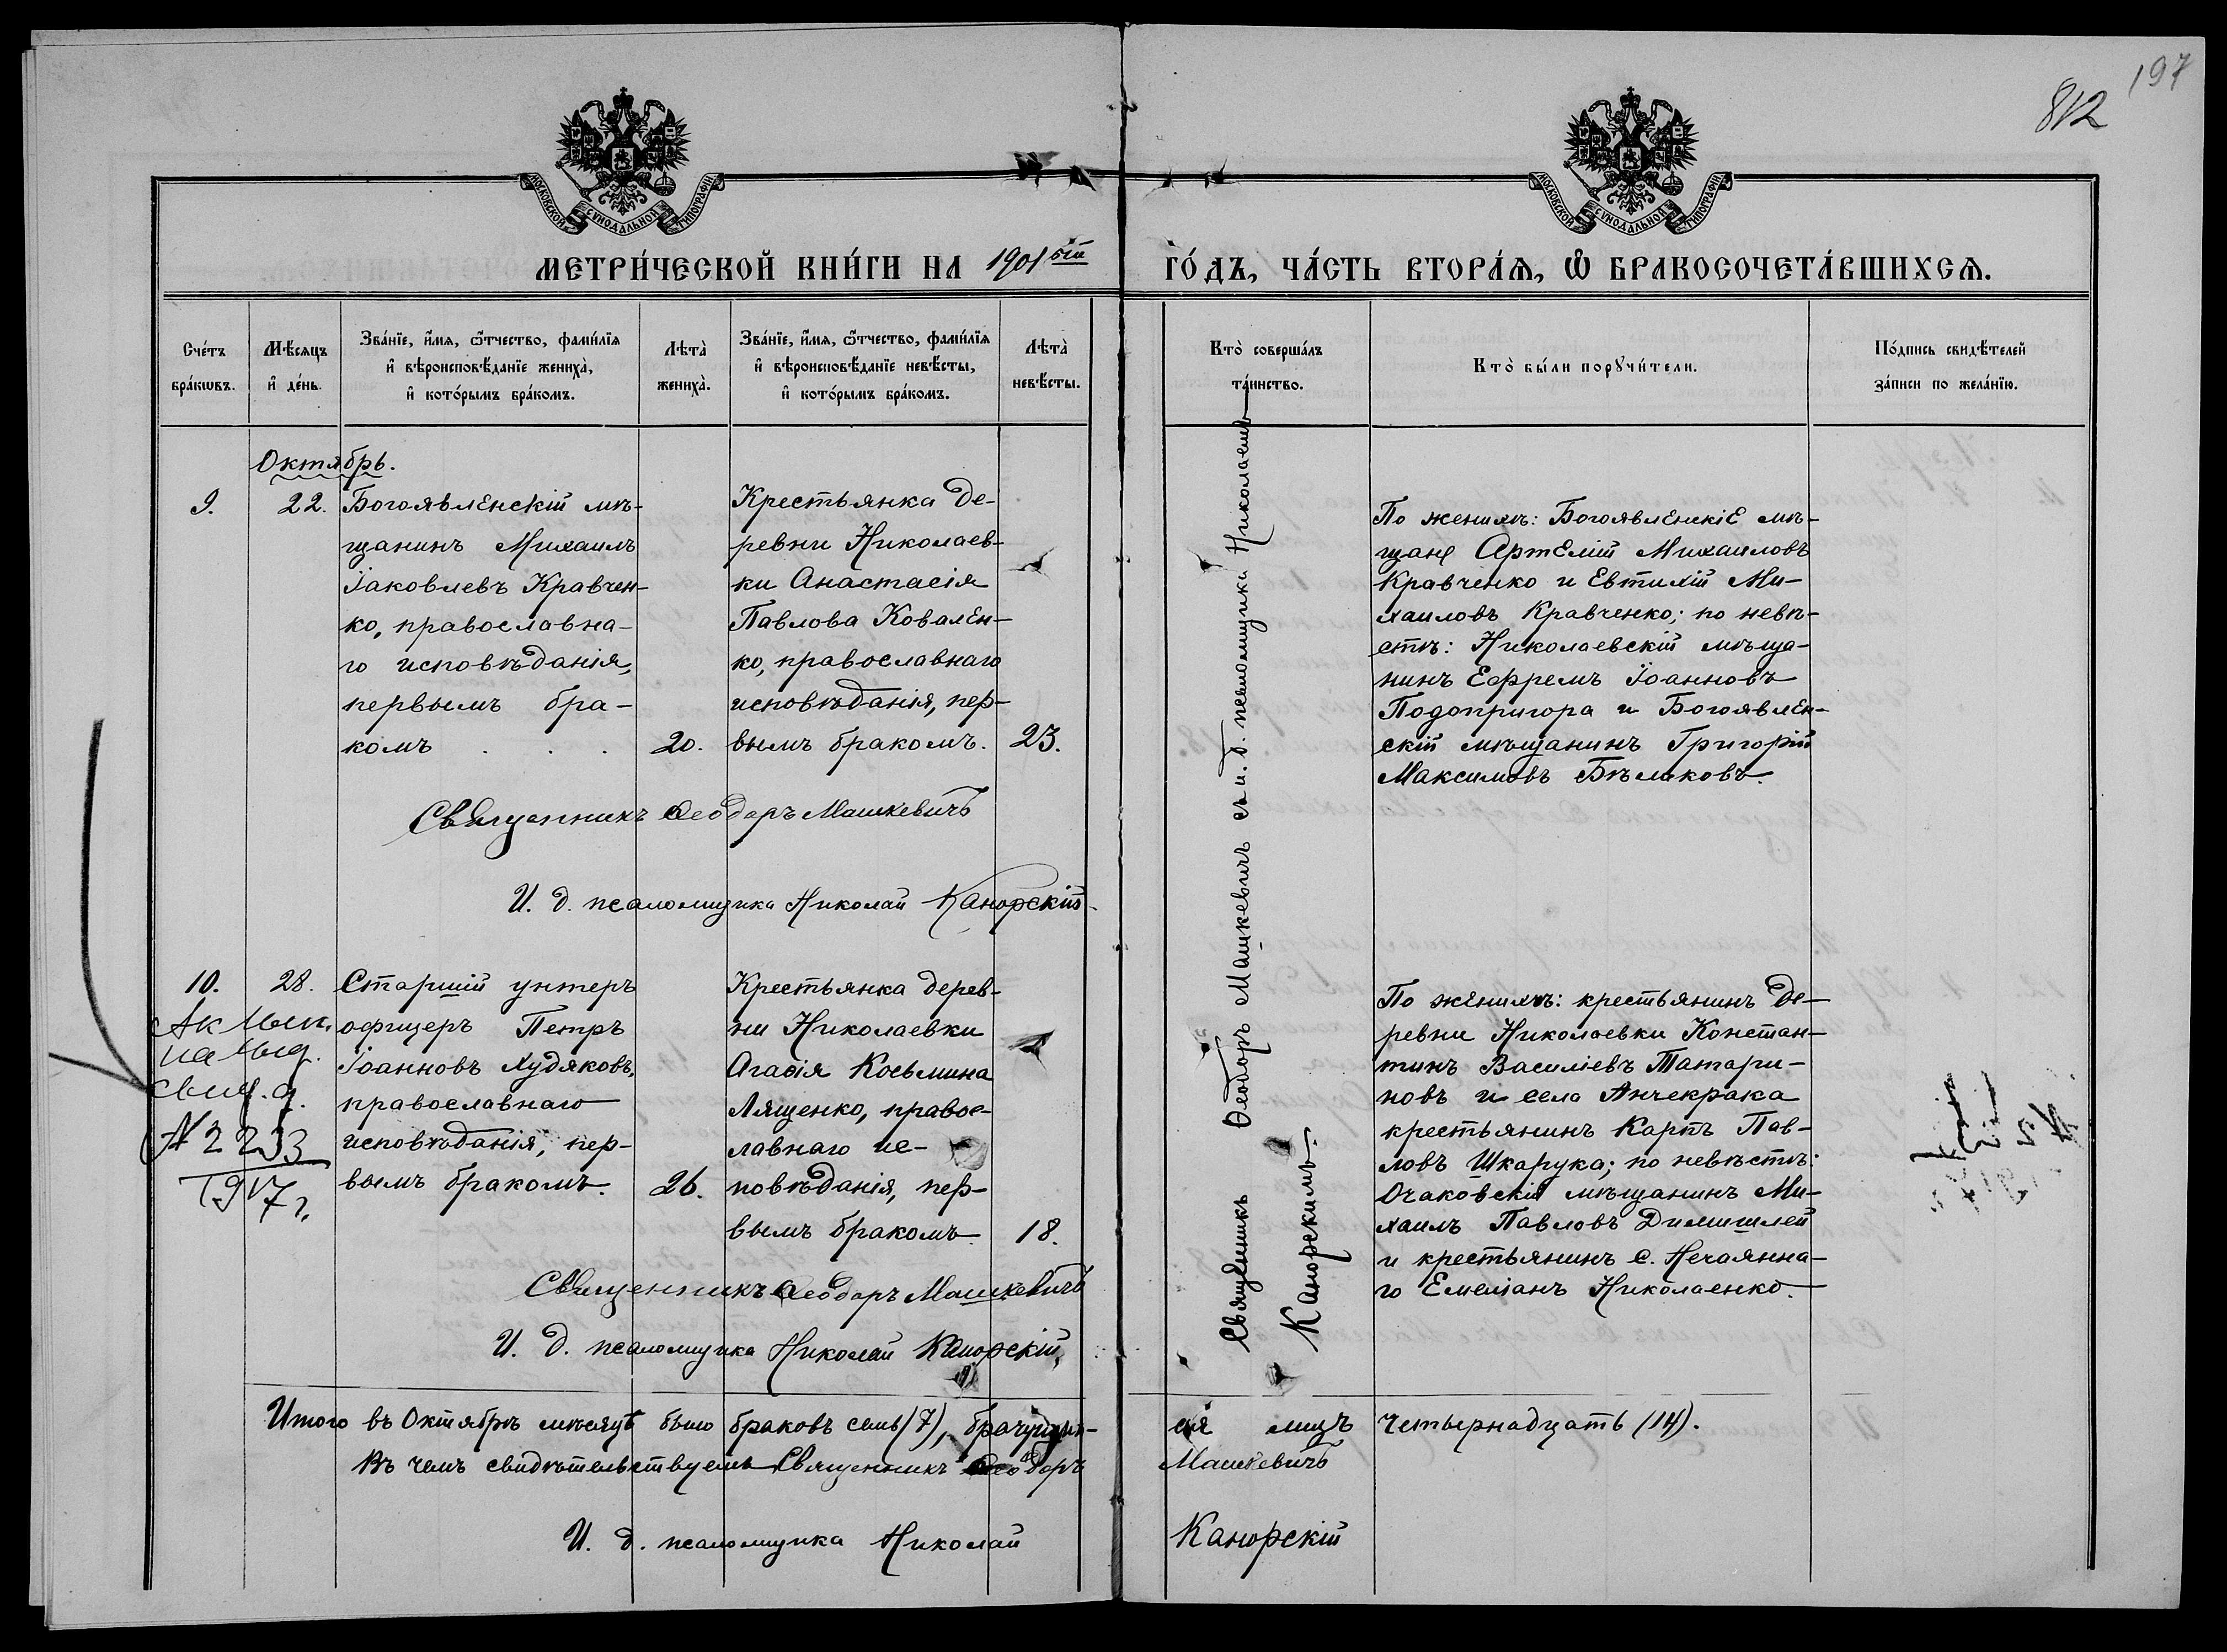 197
812
МОСКОВСКОЙ СѴНОДАЛЬНОЙ ТИПОГРАФІИ
МОСКОВСКОЙ СѴНОДАЛЬНОЙ ТИПОГРАФІИ
МЕТРИ́ЧЕСКОЙ КНИ́ГИ НА 1901ый ГО́ДЪ, ЧА́СТЬ ВТОРА́Ѧ, Ѽ БРАКОСОЧЕТА́ВШИХСѦ.
Сче́тъ
бра́кѡвъ.
Мѣ́сяцъ
и҆ де́нь.
Зва́нїе, и҆́мя, ѻ҆́тчество, фами́лїя
и҆ вѣроисповѣ́данїе жениха̀,
и҆ кото́рымъ бра́комъ.
Лѣта̀
жениха̀.
Зва́нїе, и҆́мя, ѻ҆́тчество, фами́лїя
и҆ вѣроисповѣ́данїе невѣ́сты,
и҆ кото́рымъ бра́комъ.
Лѣта̀
невѣ́сты.
Кто̀ соверша́лъ
та́инство.
Кто̀ бы́ли порꙋчи́тели.
По́дпись свидѣ́телей
за́писи по жела́нїю.
Октябрь.
9.
22.
Богоявленскій мѣ-
щанинъ Михаилъ
Іаковлевъ Кравчен-
ко, православна-
го исповѣданія,
первымъ бра-
комъ . . .
20.
Крестьянка де-
ревни Николаев-
ки Анастасія
Павлова Ковален-
ко, православнаго
исповѣданія, пер-
вымъ бракомъ.
23.
Священникъ Ѳеодоръ Машкевичъ съ и. д. псаломщика Николаемъ
Канорскимъ.
По женихѣ: Богоявленскіе мѣ-
щане Артемій Михаиловъ
Кравченко и Евтихій Ми-
хаиловъ Кравченко; по невѣ-
стѣ: Николаевскій мѣща-
нинъ Ефремъ Іоанновъ
Подопригора и Богоявлен-
скій мѣщанинъ Григорій
Максимовъ Бѣликовъ.
Священникъ Ѳеодоръ Машкевичъ
И. д. псаломщика Николай Канорскій
10.
28.
N 2233
1917 г.
Старшій унтеръ
офицеръ Петръ
Іоанновъ Худяковъ,
православнаго
исповѣданія, пер-
вымъ бракомъ.
26.
Крестьянка дерев-
ни Николаевки
Агафія Косьмина
Лященко, правос-
лавнаго ис-
повѣданія, пер-
вымъ бракомъ
18.
По женихѣ: крестьянинъ де-
ревни Николаевки Констан-
тинъ Василіевъ Татари-
новъ и села Анчекрака
крестьянинъ Карпъ Пав-
ловъ Шкарука; по невѣстѣ:
Очаковскій мѣщанинъ Ми-
хаилъ Павловъ Димишлей
и крестьянинъ с. Нечаянна-
го Емеліанъ Николаенко.
Священникъ Ѳеодоръ Машкевичъ
И. д. псаломщика Николай Канорскій
Итого въ Октябрѣ мѣсяцѣ было браковъ семь (7), брачущих-
ся лицъ четырнадцать (14).
Въ чемъ свидѣтельствуемъ Священникъ Ѳеодоръ Машкевичъ
И. д. псаломщика Николай Канорскій